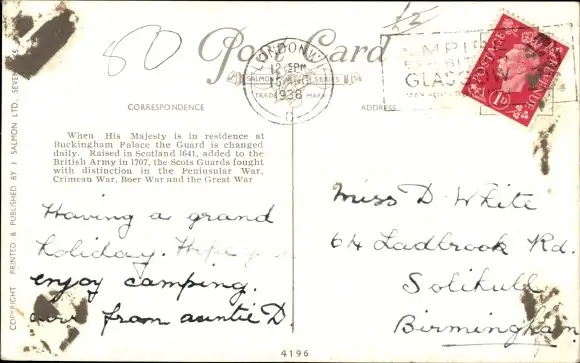 80
£2
Post Card
LONDON W.1
12 30 PM
1938
C
EMPIRE
EXHIBITION
GLASGOW
MAY-OCT
POSTAGE
REVENUE
1D
SALMON SERIES
TRADE MARK
CORRESPONDENCE
ADDRESS
When His Majesty is in residence at
Buckingham Palace the Guard is changed
daily. Raised in Scotland 1641, added to the
British Army in 1707, the Scots Guards fought
with distinction in the Peniusular War,
Crimean War, Boer War and the Great War
Having a grand
holiday. Hope you
enjoy camping.
from auntie D.
Miss D. White
64 Ladbrook Rd.
Solihull
Birmingham
COPYRIGHT PRINTED & PUBLISHED BY J. SALMON LTD. SEVEN
4196